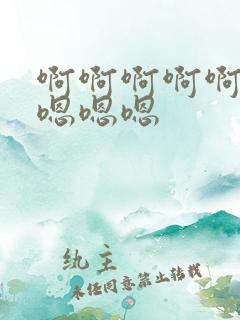 啊啊啊啊啊
嗯嗯嗯
纨主
未经同意禁止转载